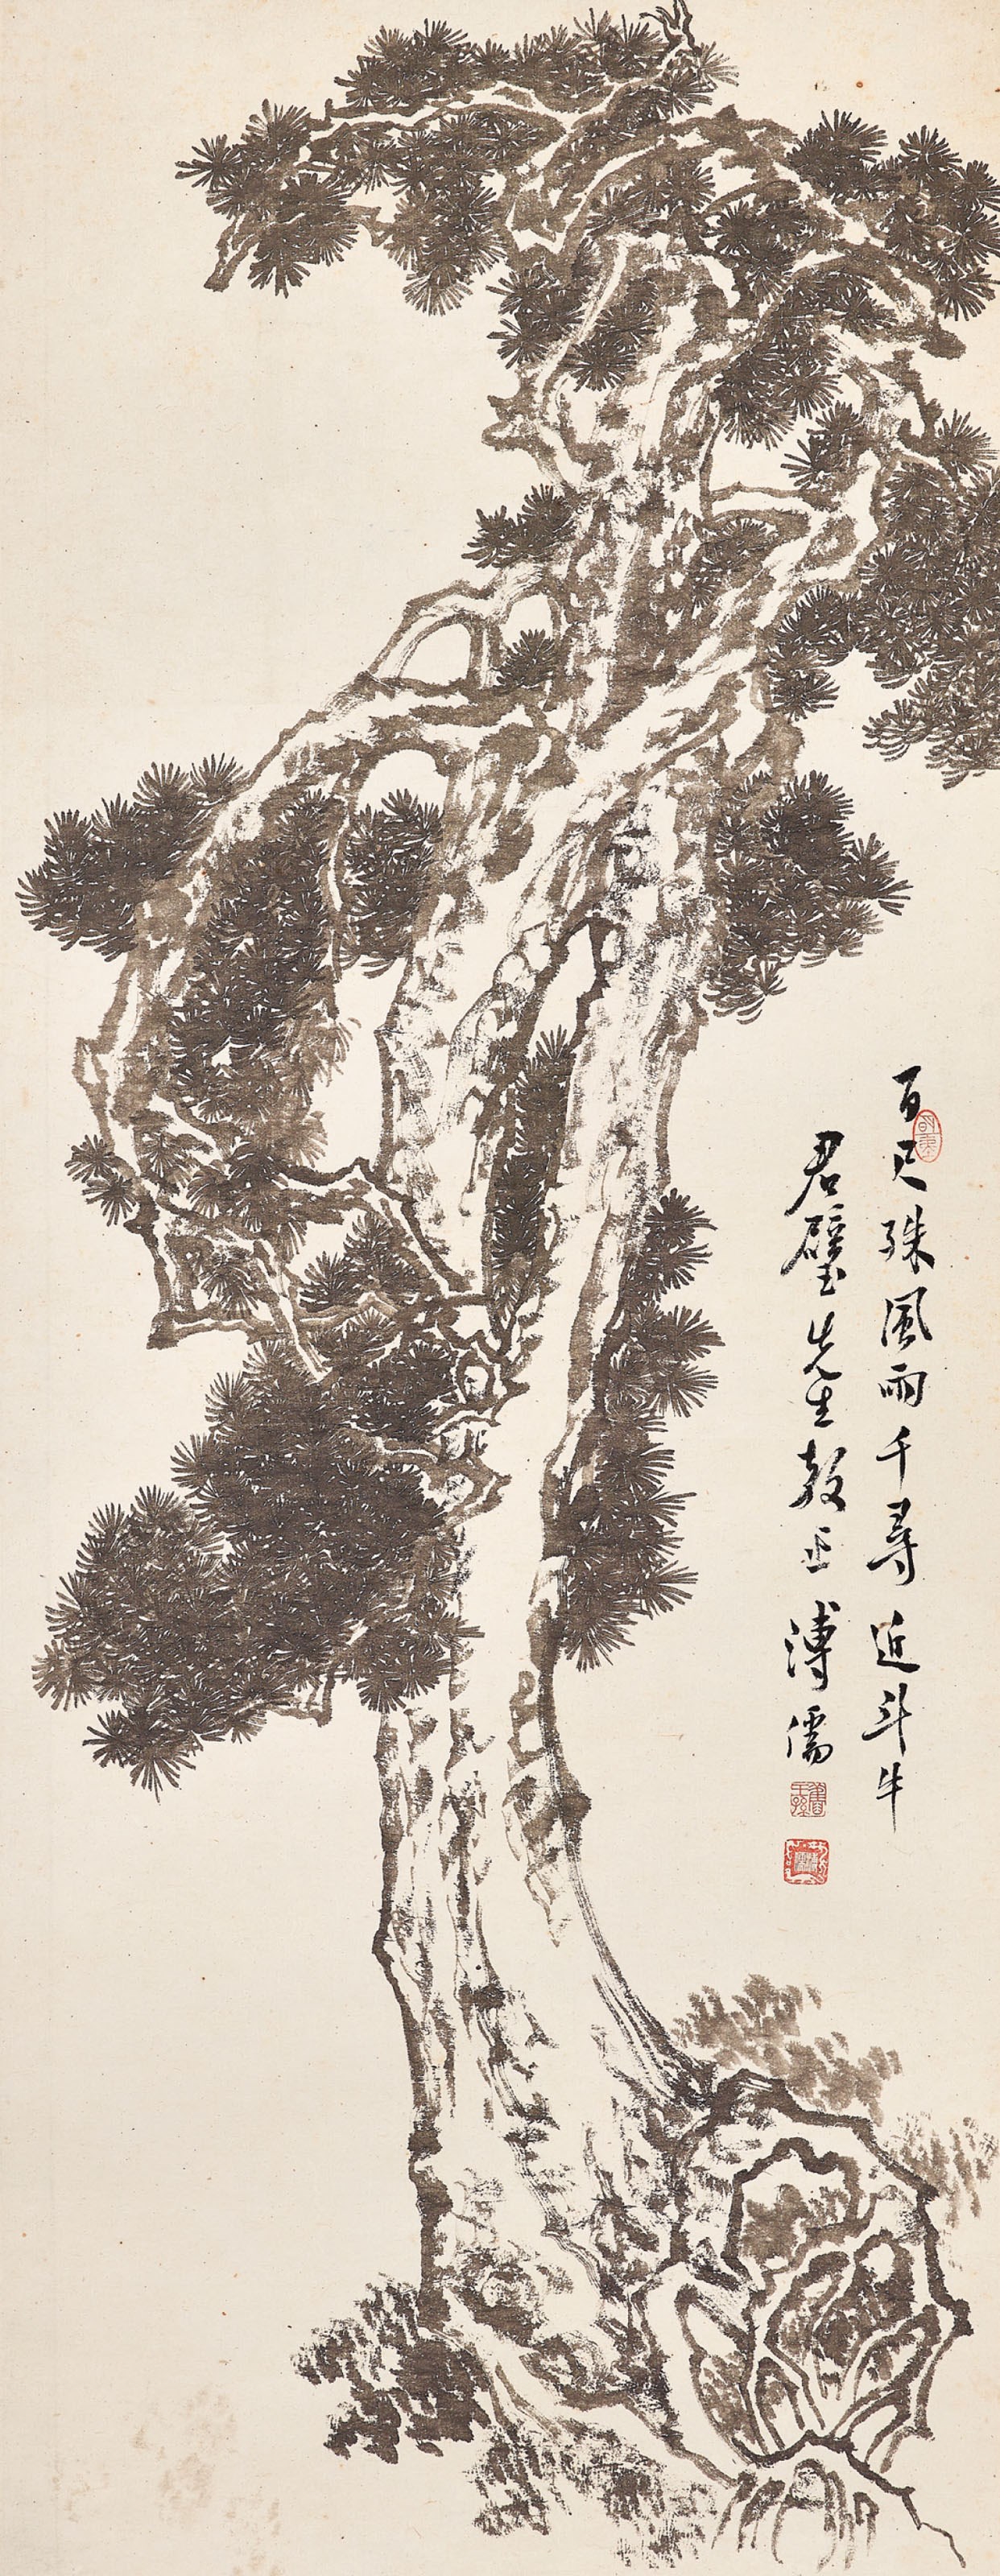 百尺殊風雨千尋近斗牛
君璧先生教正溥儒